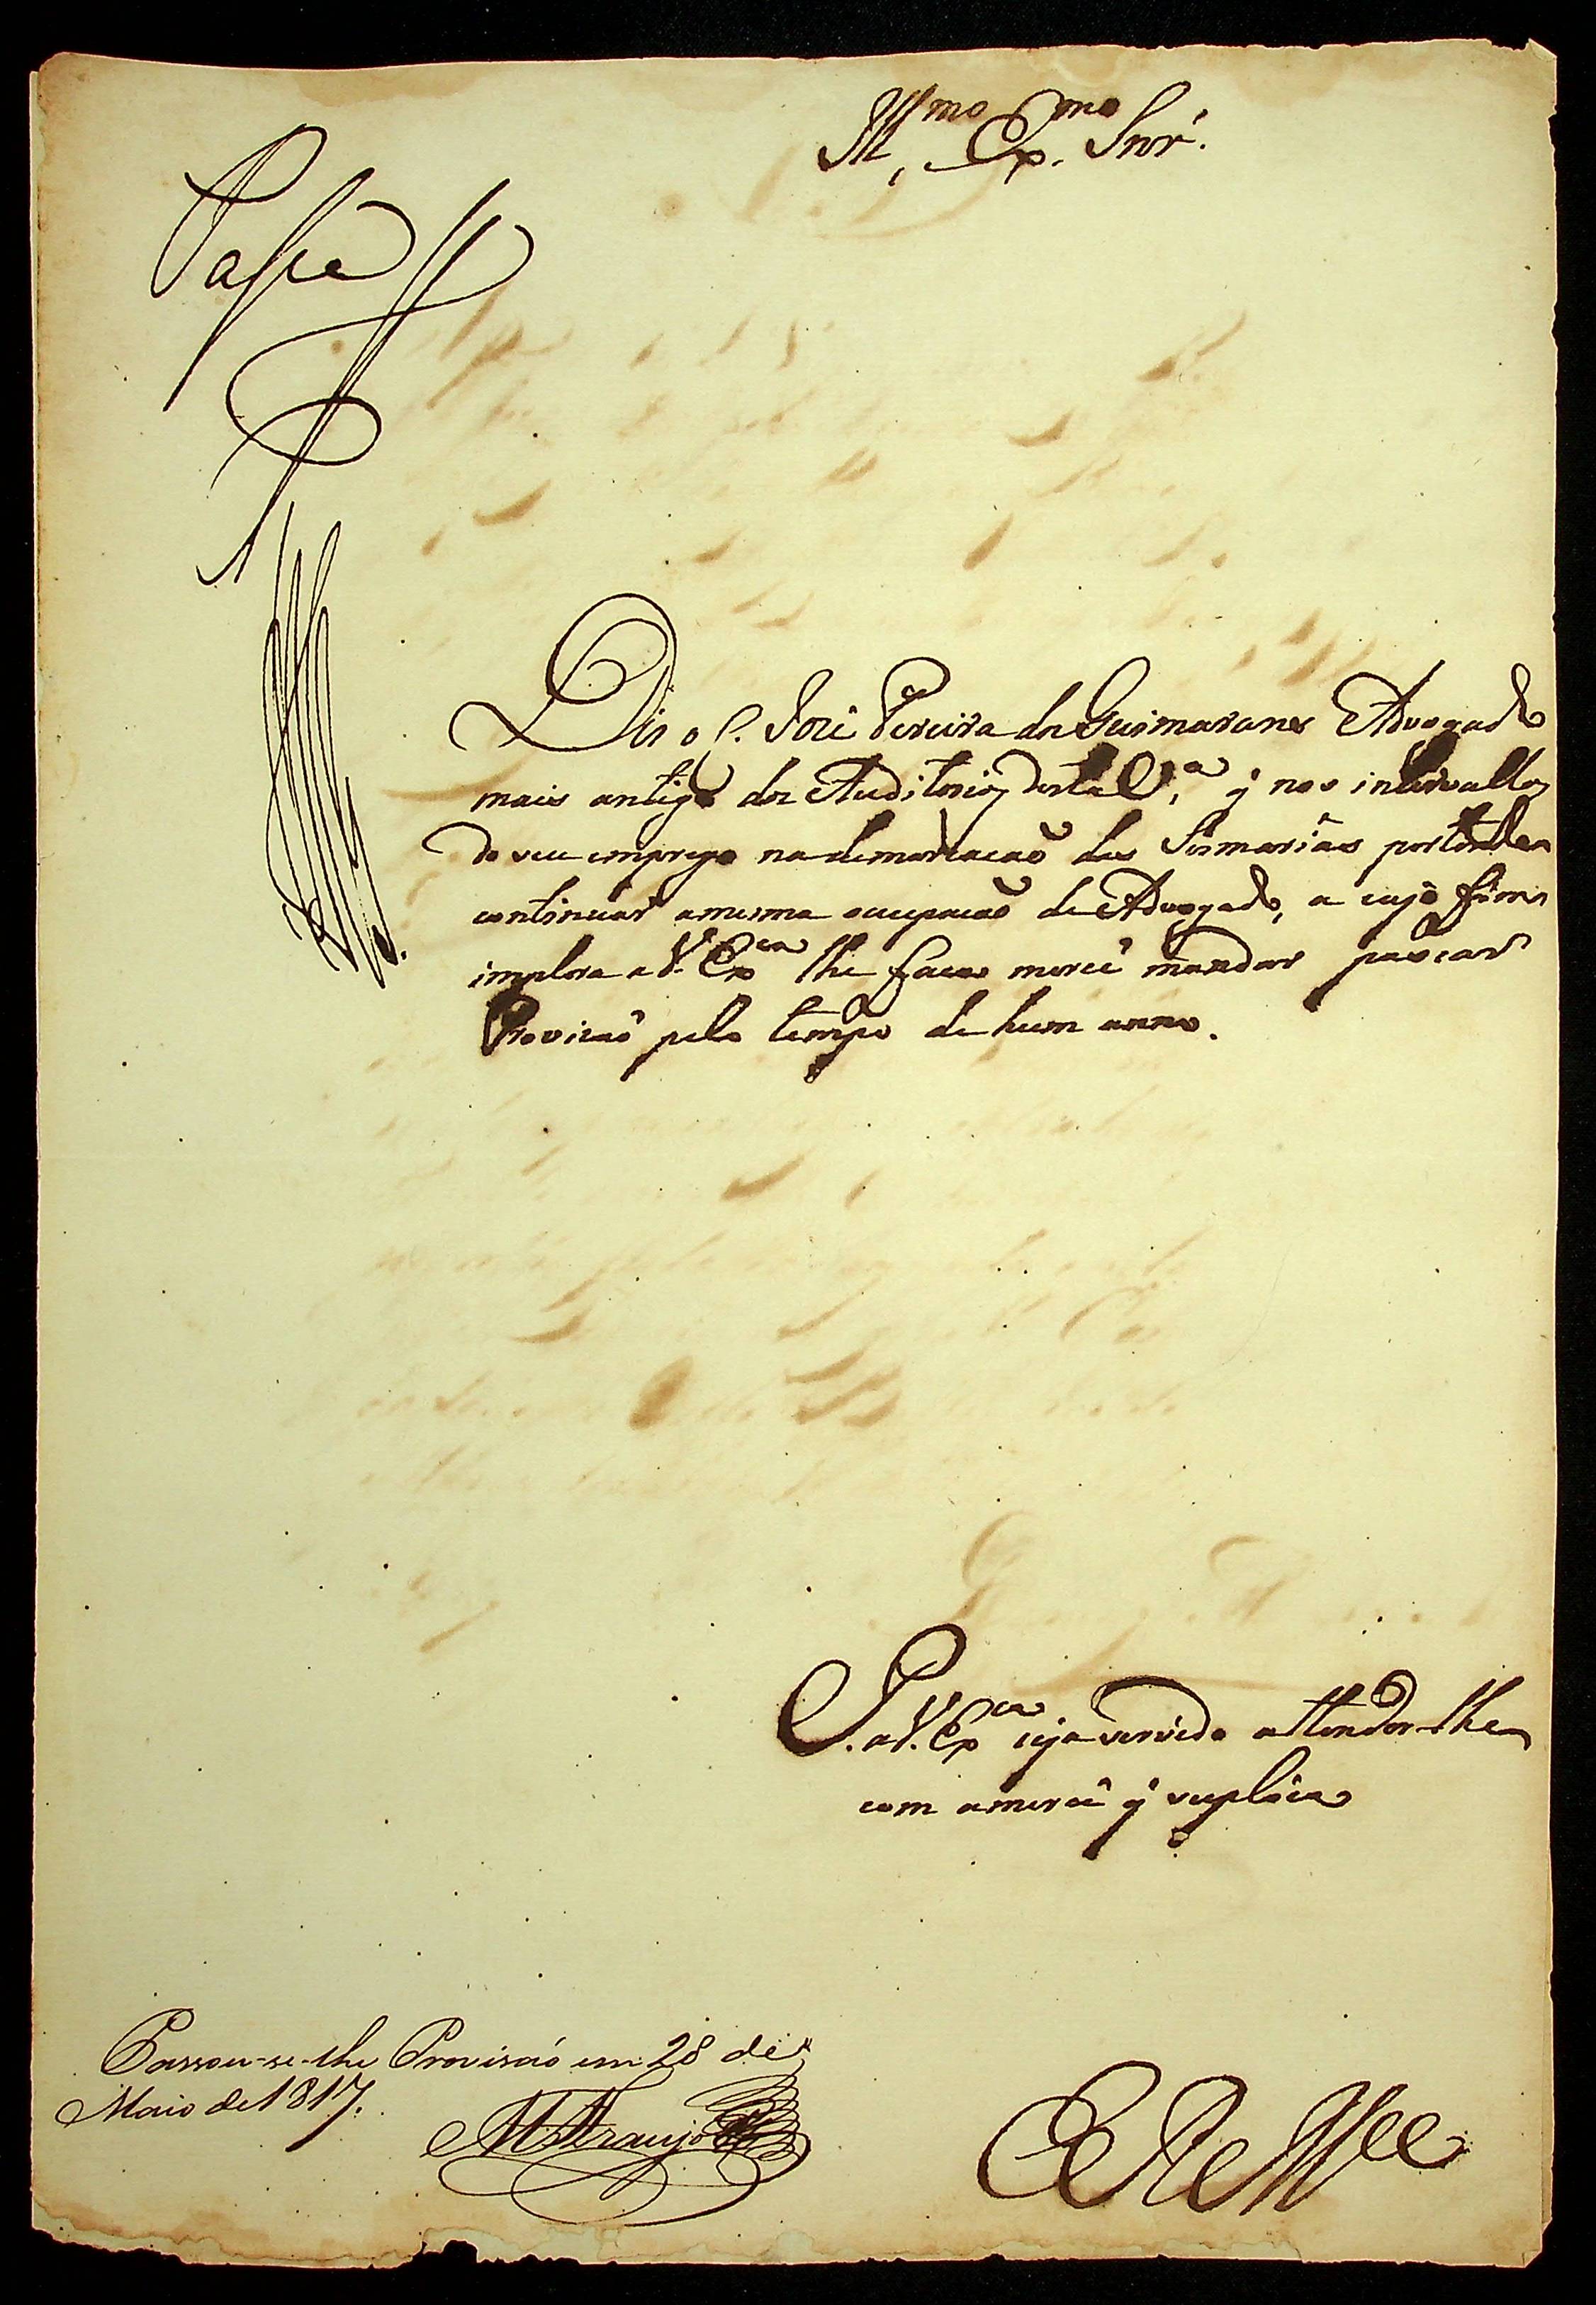 Ill.mo Ex.mo Snr.
Passe
Dis o P. Jozé Pereira dos Guimaranes Advogado
mais antigo dos Auditorios desta C.a q̃ nos intervallos
do seu emprego na demarcacaõ das Sismarias pertende
continuar a mesma occupacaõ de Advogado, a cujo fim
implora a V. Ex.ca lhe faca mercê mandar passar
Provizaõ pelo tempo de hum anno.
P. a V. Ex.ca seja servido attender-lhe
com a mercê q̃ suplica
E R Mce
Passou-se-lhe Provisaõ em 28 de
Maio de 1817.
M Araujo